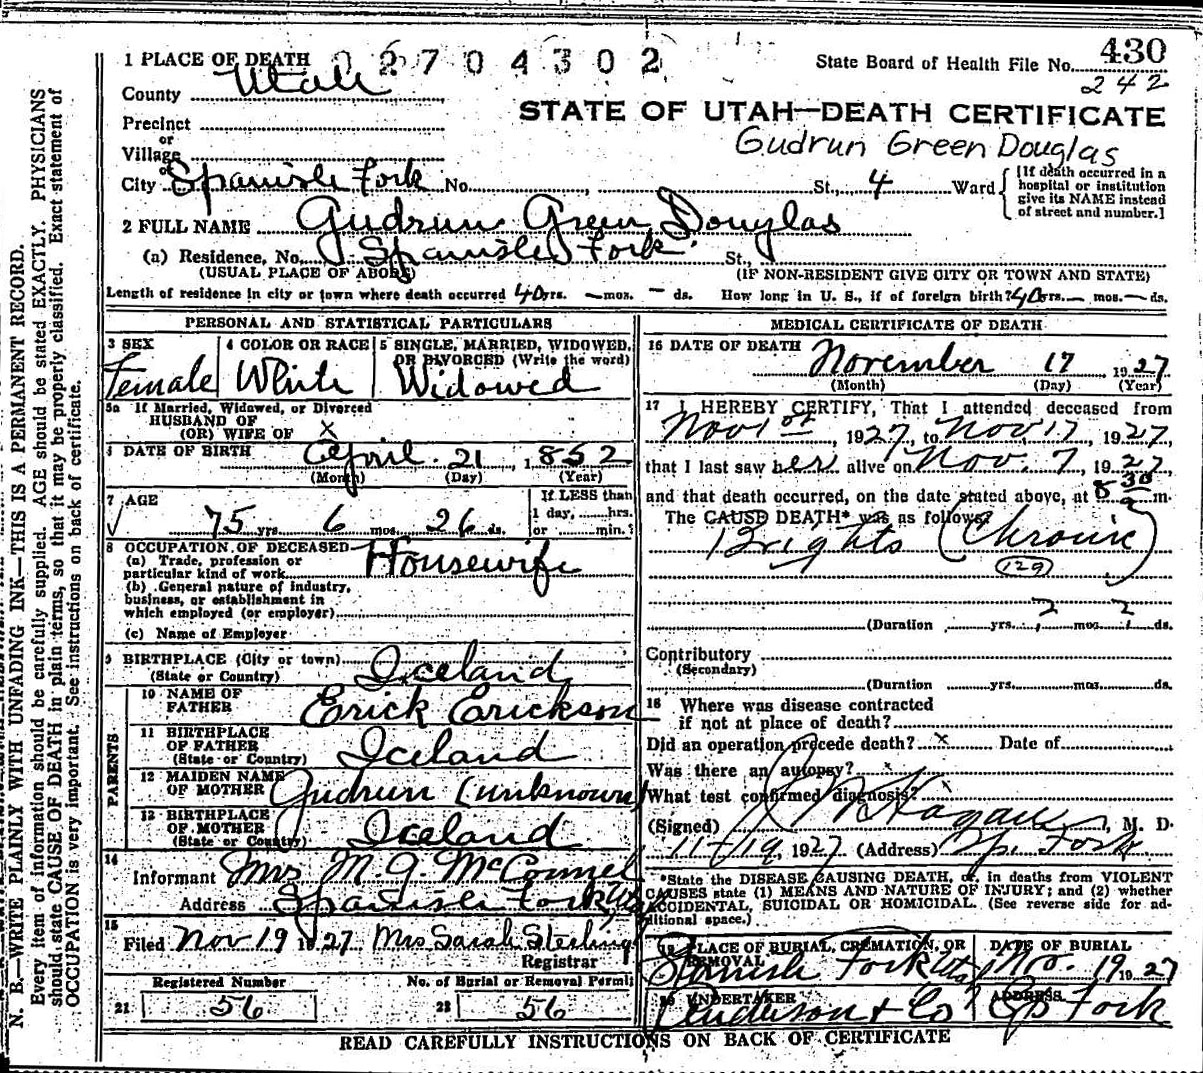 1 PLACE OF DEATH 02704302 State Board of Health File No. 430
County Utah 242
STATE OF UTAH—DEATH CERTIFICATE
Precinct
or
Village
Gudrun Green Douglas
or
City Spanish Fork No. St., 4 Ward
[If death occurred in a hospital or institution give its NAME instead of street and number.]
2 FULL NAME Gudrun Green Douglas
(a) Residence, No. Spanish Fork. St.,
(USUAL PLACE OF ABODE) (IF NON-RESIDENT GIVE CITY OR TOWN AND STATE)
Length of residence in city or town where death occurred 40 yrs. — mos. — ds. How long in U. S., if of foreign birth? 40 yrs. — mos. — ds.
PERSONAL AND STATISTICAL PARTICULARS
3 SEX Female
4 COLOR OR RACE White
5 SINGLE, MARRIED, WIDOWED, OR DIVORCED (Write the word) Widowed
5a If Married, Widowed, or Divorced
HUSBAND OF
(OR) WIFE OF x
6 DATE OF BIRTH April 21, 1852
(Month) (Day) (Year)
7 AGE 75 yrs. 6 mos. 26 ds.
If LESS than
1 day, hrs.
or min.?
8 OCCUPATION OF DECEASED Housewife
(a) Trade, profession or
particular kind of work
(b) General nature of industry,
business, or establishment in
which employed (or employer)
(c) Name of Employer
9 BIRTHPLACE (City or town)
(State or Country) Iceland
PARENTS
10 NAME OF FATHER Erick Erickson
11 BIRTHPLACE OF FATHER (State or Country) Iceland
12 MAIDEN NAME OF MOTHER Gudrun (unknown)
13 BIRTHPLACE OF MOTHER (State or Country) Iceland
14 Informant Mrs M. G. McConnel
Address Spanish Fork Uta
15 Filed Nov 19 1927 Mrs Sarah Sterling
Registrar
Registered Number No. of Burial or Removal Permit
21 56 22 56
MEDICAL CERTIFICATE OF DEATH
16 DATE OF DEATH November 17 1927
(Month) (Day) (Year)
17 I HEREBY CERTIFY, That I attended deceased from
Nov 1st, 1927, to Nov 17 1927,
that I last saw her alive on Nov. 7, 1927
and that death occurred, on the date stated above, at 8 30 a m.
The CAUSE DEATH* was as follows:
Brights (Chronic)
129
(Duration yrs. 2 mos. 2 ds.
Contributory
(Secondary)
(Duration yrs. mos. ds.
18 Where was disease contracted
if not at place of death?
Did an operation precede death? x Date of
Was there an autopsy? x
What test confirmed diagnosis?
(Signed) , M. D.
11-19, 1927 (Address) Sp. Fork
*State the DISEASE CAUSING DEATH, or, in deaths from VIOLENT
CAUSES state (1) MEANS AND NATURE OF INJURY; and (2) whether
ACCIDENTAL, SUICIDAL OR HOMICIDAL. (See reverse side for ad-
ditional space.)
19 PLACE OF BURIAL, CREMATION, OR REMOVAL Spanish Fork Uta
DATE OF BURIAL Nov. 19 1927
20 UNDERTAKER & Co
ADDRESS Sp Fork
READ CAREFULLY INSTRUCTIONS ON BACK OF CERTIFICATE
N. B.—WRITE PLAINLY WITH UNFADING INK—THIS IS A PERMANENT RECORD.
Every item of information should be carefully supplied. AGE should be stated EXACTLY. PHYSICIANS
should state CAUSE OF DEATH in plain terms, so that it may be properly classified. Exact statement of
OCCUPATION is very important. See instructions on back of certificate.